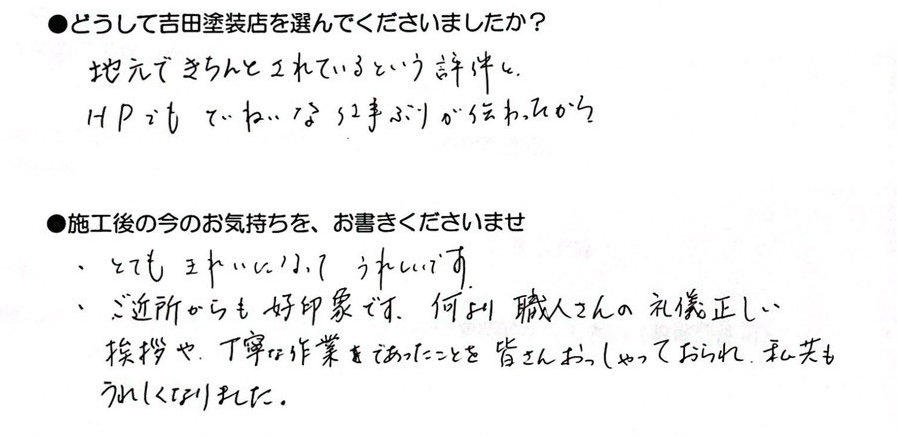 ●どうして吉田塗装店を選んでくださいましたか？
地元できちんとされているという評件と、
HPでもていねいな仕事ぶりが伝わったから
●施工後の今のお気持ちを、お書きくださいませ
・とてもきれいになって うれしいです。
・ご近所からも好印象です。何より 職人さんの礼儀正しい
挨拶や、丁寧な作業をであったことを皆さんおっしゃっておられ、私共も
うれしくなりました。